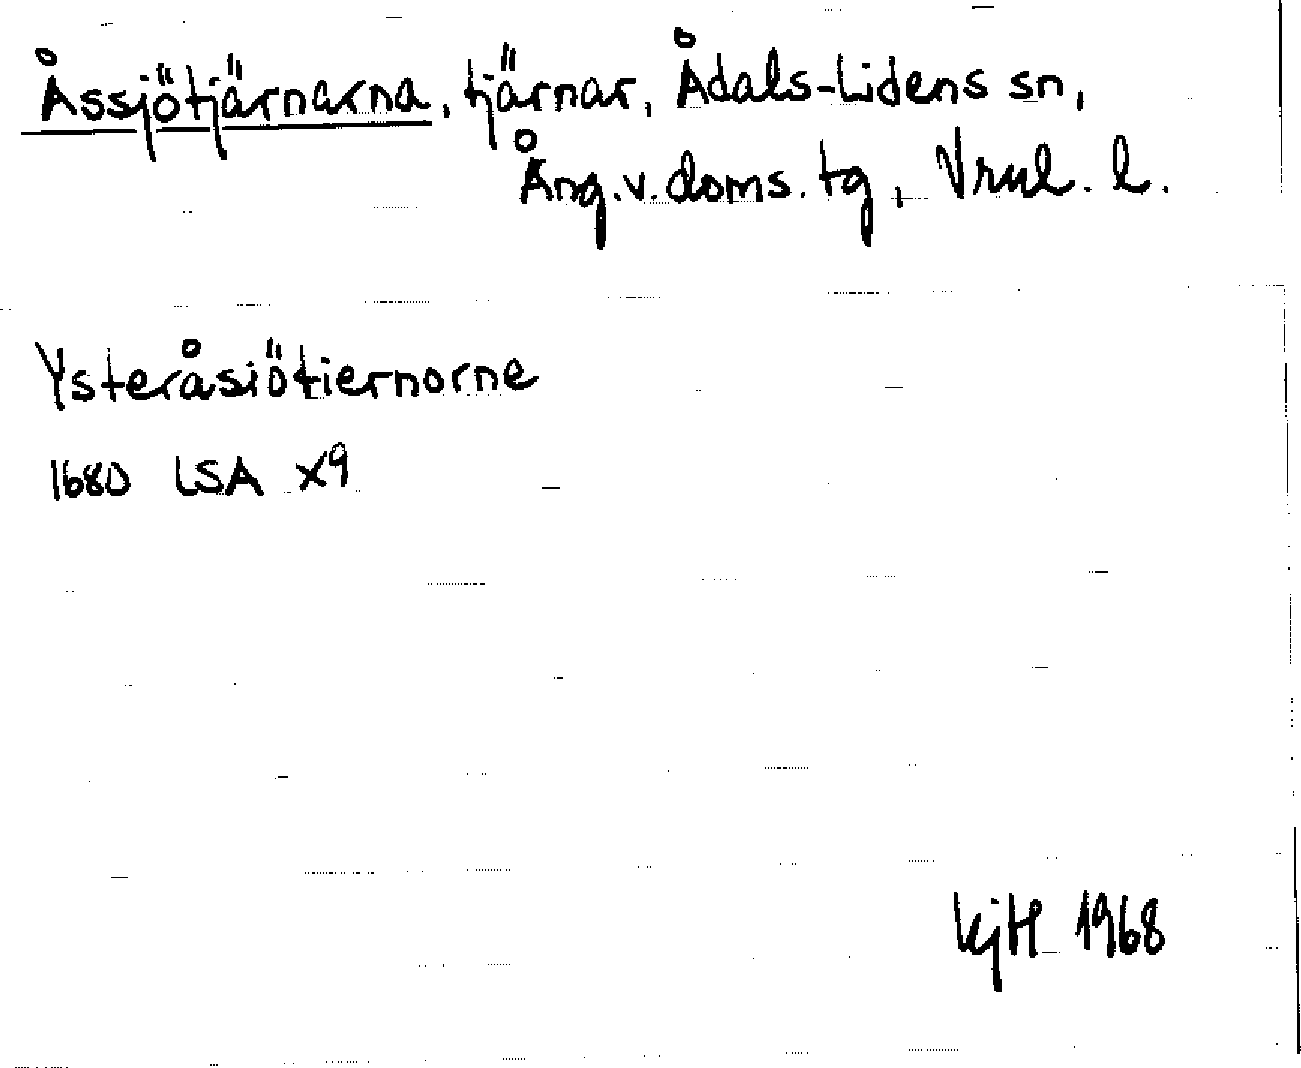 Åssjötjärnarna, tjärnar, Ådals-Lidens sn,
Ång. v. doms. tg, Vrnl. l.
Ysteråsiötiernorne
1680 LSA X9
KjH 1968